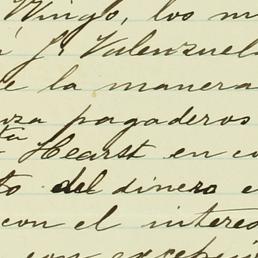 Ningo, los m
J. Valenzuel
e la manera
za pagaderos
ta
Hearst en co
to del dinero e
con el interes
con excepció